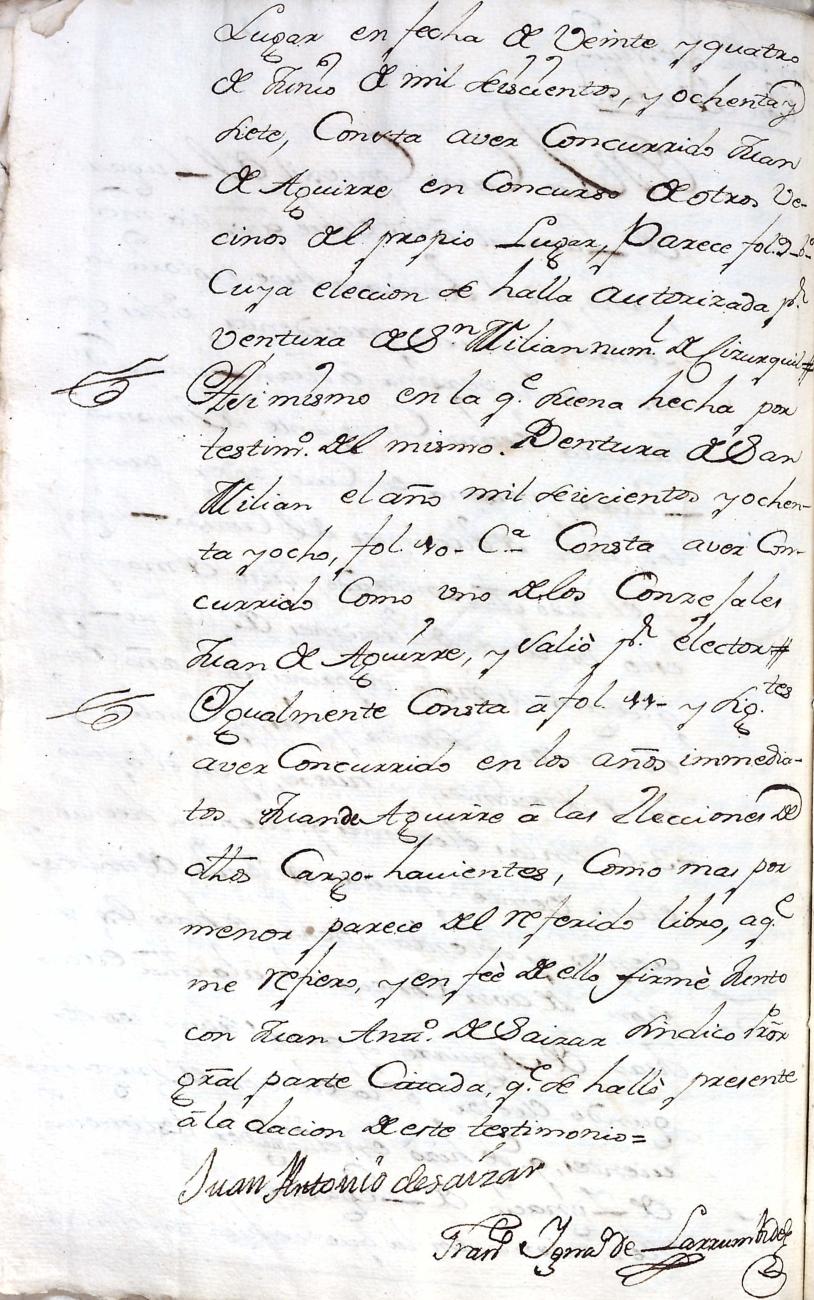 Lugar en fecha de Veinte y quatro
de Junio de mil seiscientos, y ochenta y
siete, Consta aver Concurrido Juan
de Aguirre en Concurso de otros Ve-
cinos del propio Lugar, Parece fol.
Cuya eleccion se halla autorizada pr.
ventura de Sn. Milian num.l de Cizurquil#
Assi mismo en la q.e suena hecha por
testim.o del mismo Ventura de San
Milian el año mil seiscientos y ochen-
ta y ocho, fol. 10- C.a Consta aver Con-
currido Como uno de los Conzejales
Juan de Aguirre, y Saliò pr. elector#
Igualmente Consta â fol. 11- y sig.tes
aver Concurrido en los años immedia-
tos Juan de Aguirre â las Elecciones de
dhos Cargo-havientes, Como mas por
menor parece del referido libro, aq.e
me refiero, y en feè de ello firmè Junto
con Juan Antt.o de Saizar Sindico Pror
gral parte Citada, q.e se hallò presente
â la dacion de este testimonio=
Juan Antonio de saizar
Fran.co Igna.o de Larrumbide